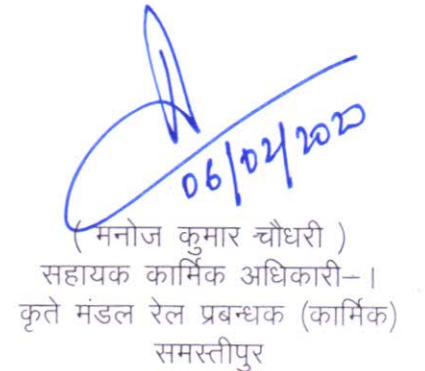 06/02/2020
( मनोज कुमार चौधरी )
सहायक कार्मिक अधिकारी–।
कृते मंडल रेल प्रबन्धक (कार्मिक)
समस्तीपुर